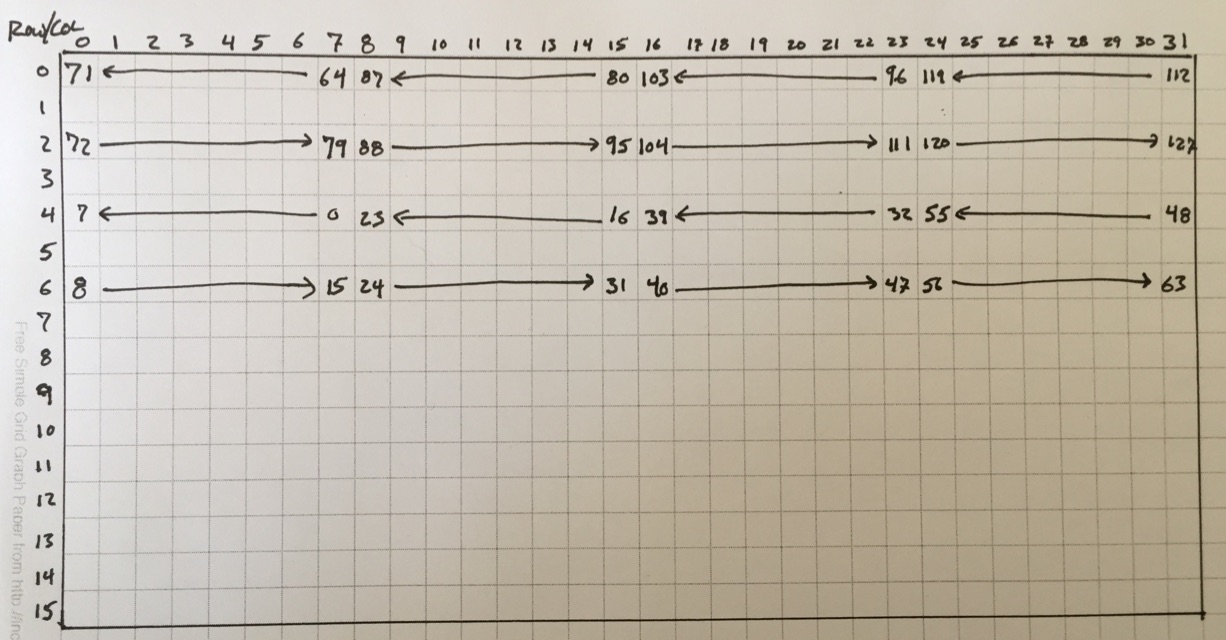 Row/Col
0 1 2 3 4 5 6 7 8 9 10 11 12 13 14 15 16 17 18 19 20 21 22 23 24 25 26 27 28 29 30 31
0 71 64 87 80 103 96 119 112
1
2 72 79 88 95 104 111 120 127
3
4 7 0 23 16 39 32 55 48
5
6 8 15 24 31 40 47 56 63
7
8
9
10
11
12
13
14
15
Free Simple Grid Graph Paper from http://inc